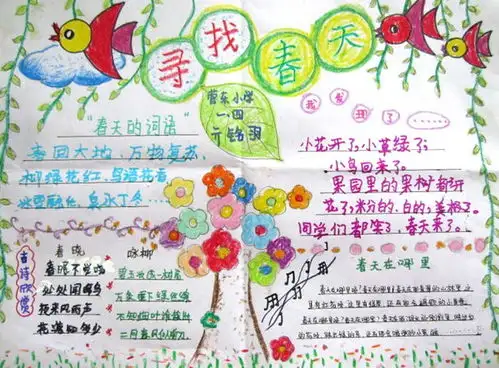 寻找春天
营东小学
一.四
我发现了……
"春天的词语"
春回大地、万物复苏、
柳绿花红、鸟语花香
冰雪融化、泉水丁冬……
小花开了;小草绿了;
小鸟回来了。
果园里的果树都开
花了;粉的、白的;美极了。
同学们都笑了,春天来了。
古诗欣赏
春晓
春眠不觉晓
处处闻啼鸟
夜来风雨声
花落知多少
咏柳
碧玉妆成一树高
万条垂下绿丝绦
不知细叶谁裁出
二月春风似剪刀
春天在哪里